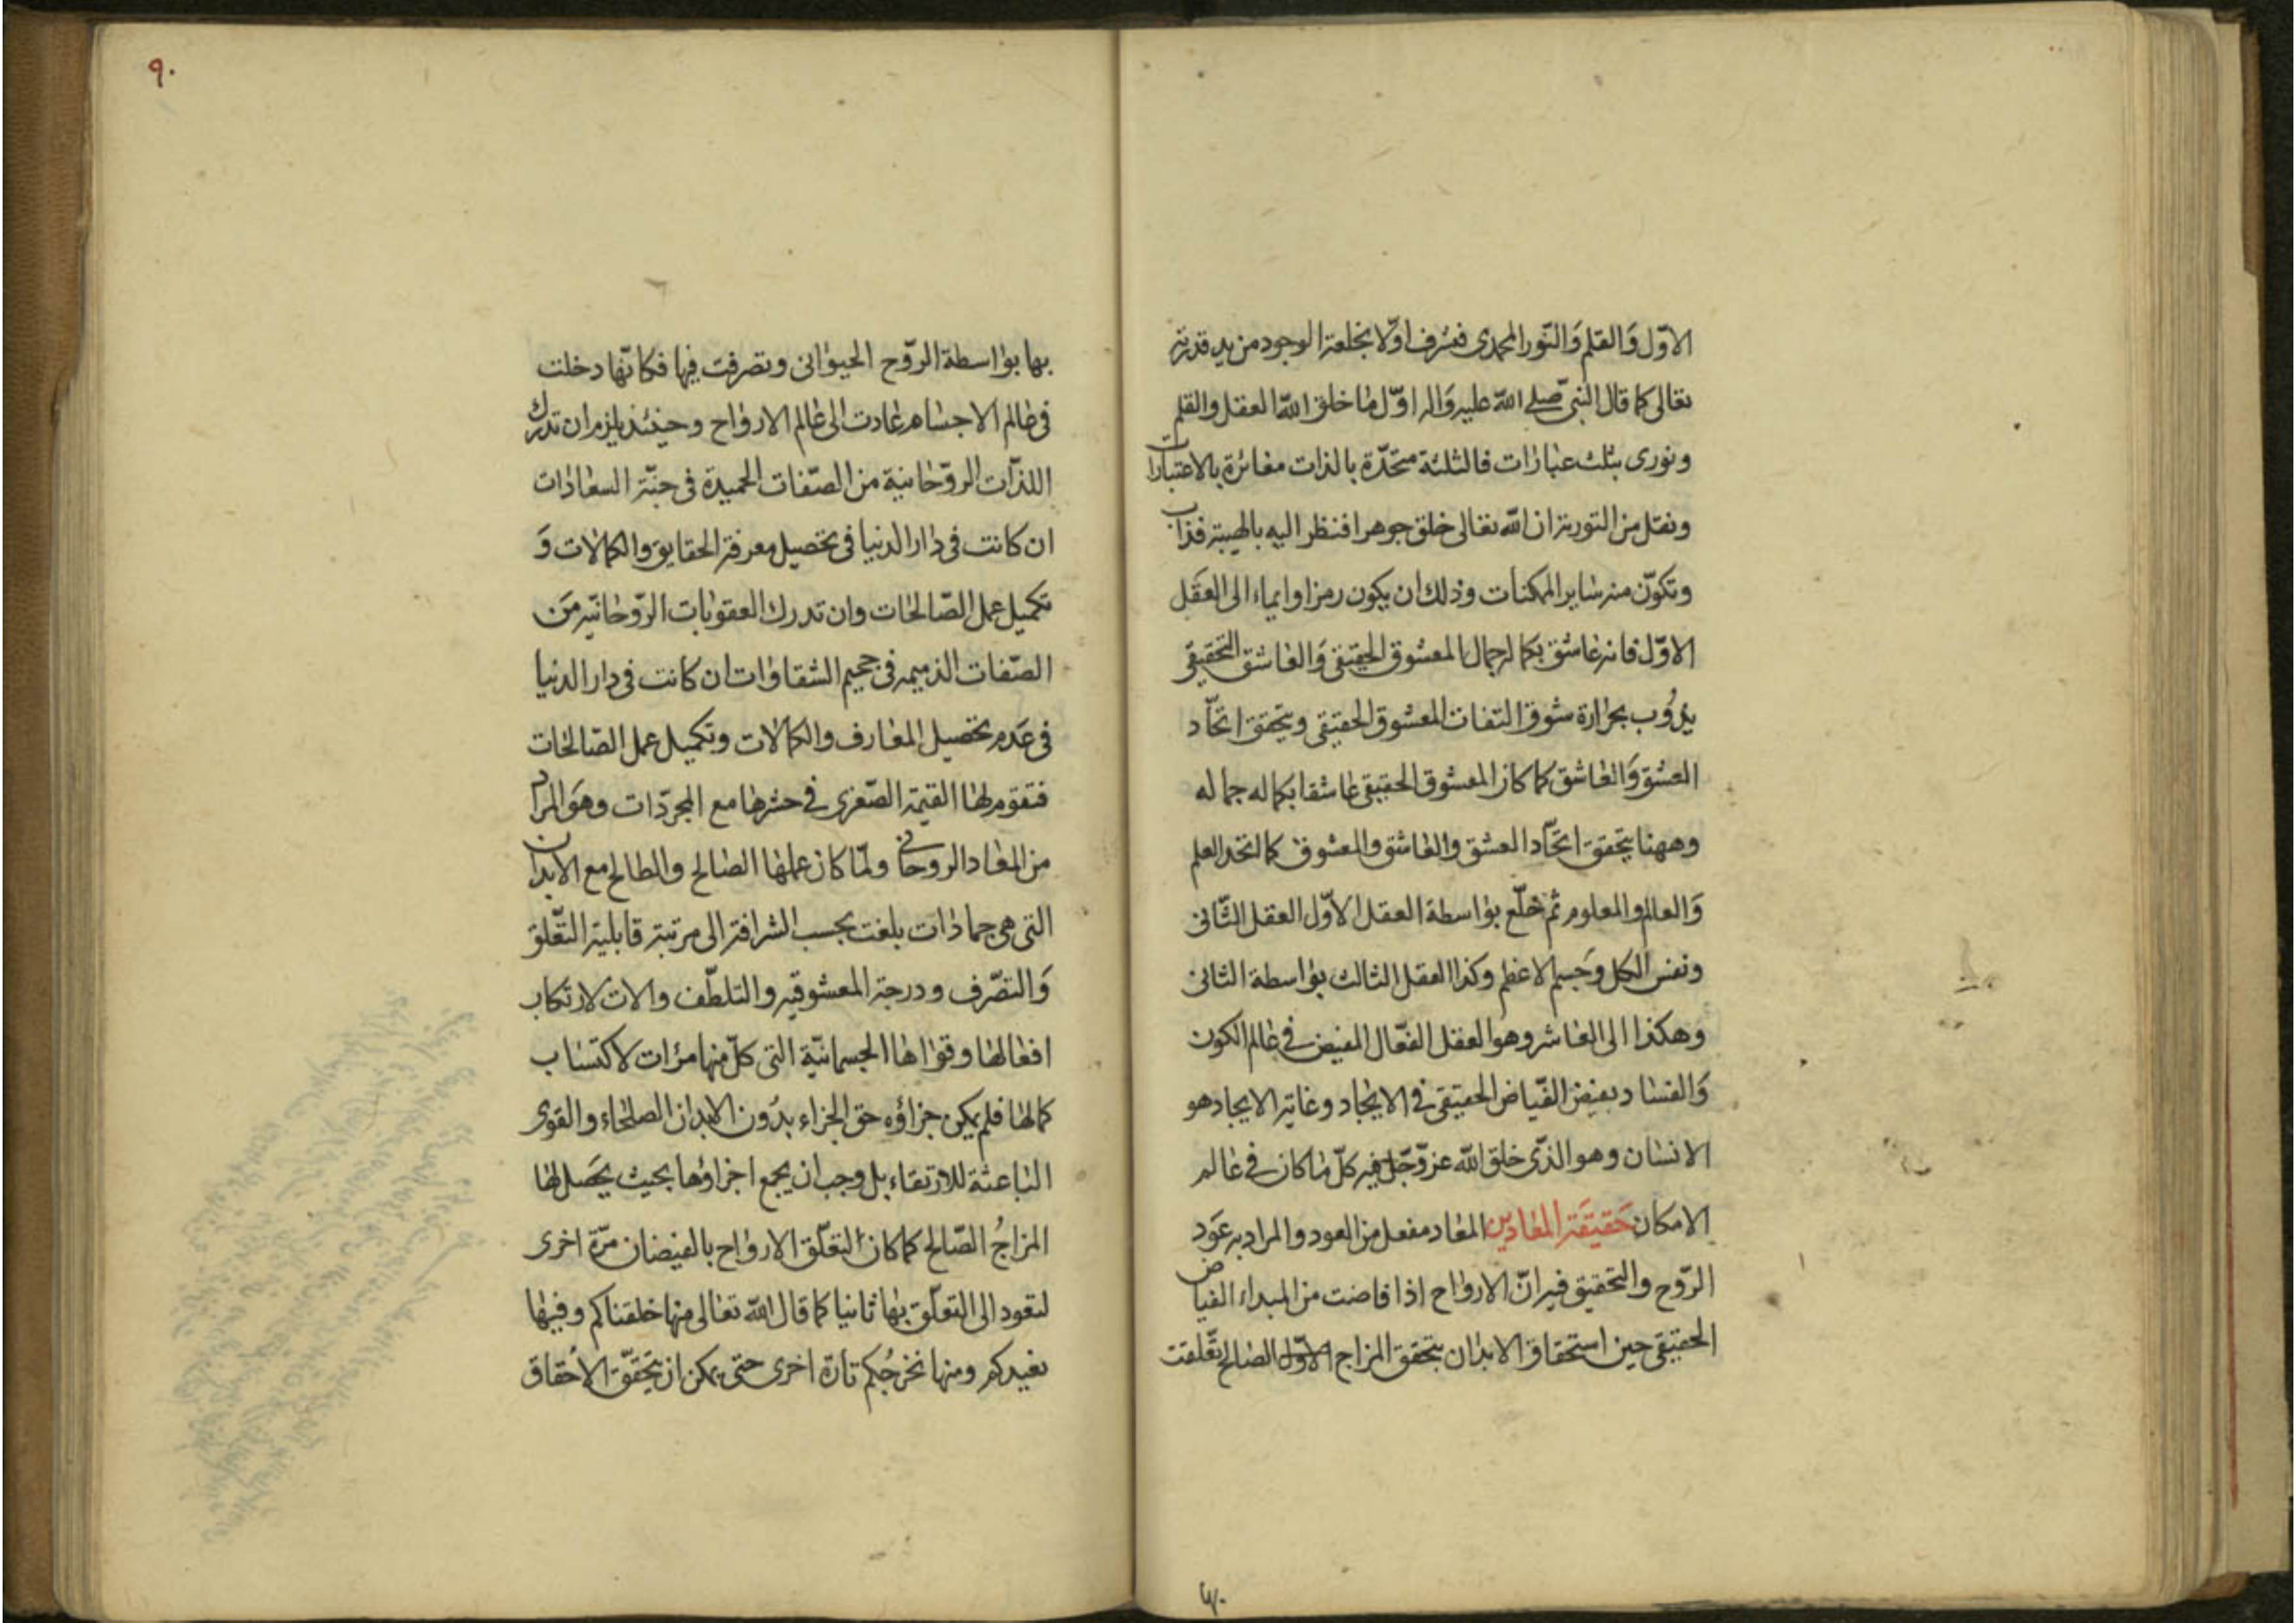 الاوّل وَالقلم وَالنّور المحمدى فشرف اوّلا بخلعة الوجود من يد قدرته
تعالى كما قال النبىّ صلے اللّه عليه وَاله اوّل ما خلق اللّه العقل والقلم
ونورى بثلث عبارات فالثلثة متحّدة بالذات مغائرة بالاعتبارات
ونقل من التورية ان اللّه تعالى خلق جوهرا فنظر اليه بالهيبة فذاب
وتكوّن منه ساير الممكنات وذلك ان يكون رمزا وايماء الى العقَل
الاوّل فانه عاشق بكمال جمال المعشوق الحقيقى وَالعاشق التحقيقى
يذوُب بحرارة شوق التفات المعشوق الحقيقى ويتحقق اتحّاد
العشق وَالعاشق كما كان المعشوق الحقيقى عاشقا بكماله جماله
وههنا يتحقق اتحّاد العشق والعاشق والمعشوق كما اتحد العلم
وَالعالم والمعلوم ثم خلّع بواسطة العقل الاوّل العقل الثّانى
ونفس الكل وجَسم الاعظم وكذا العقل الثالث بواسطة الثانى
وهكذا الى العاشر وهو العقل الفعّال المفيض فى عالم الكون
وَالفساد بفيض الفّياض الحقيقى فى الايجاد وغاية الايجاد هو
الانسان وهو الذّى خلق اللّه عزّ وجّل فيه كلّ ما كان فى عالم
الامكان حَقيقَة المعادين المعاد مفعل من العود والمراد به عَود
الرّوح والتحقيق فيه انّ الارواح اذا فاضت من المبداء الفياض
الحقيقى حين استحقاق الابدان بتحقق المزاج الاوّل الصالح تعّلقت
٩٠
بها بواسطة الرّوح الحيوانى وتصرفت فيها فكانّها دخلت
فى عالم الاجسام عادت الى عالم الارواح وحينئذ يلزم ان تدرك
اللذّات الروّحانية من الصّفات الحميدة فى جنّة السعادات
ان كانت فى دار الدنيا فى تحصيل معرفة الحقايق والكمالات وَ
تكميل عمل الصّالحات وان تدرك العقوبات الرّوحانيّه مَن
الصّفات الذميمه فى جحيم الشقاوات ان كانت فى دار الدنيا
فى عَدم تحصيل المعارف والكمالات وتكميل عمل الصّالحات
فتقوم لها القيمة الصّغرى فى حشرها مع المجرّدات وهوَ المراد
من المعاد الروحانى ولمّا كان عملها الصالح والطالح مع الابدان
التى هى جمادات بلغت بحسب الشرافة الى مرتبة قابلية التعّلق
وَالتصّرف ودرجة المعشوقيه والتلطّف والات لارتكاب
افعالها وقواها الجسمانيّة التى كلّ منها مرٰات لاكتساب
كمالها فلم يكن جزاؤه حق الجزاء بدُون الابدان الصلحاء والقوى
الباعثة للارتقاء بل وجب ان يجمع اجزاؤها بحيث يحَصل لها
المزاجُ الصّالح كما كان لتعّلق الارواح بالفيضان مرّة اخرى
لتعود الى التعلّق بها ثانيا كما قال اللّه تعالى منها خلقناكم وفيها
نعيدكم ومنها نخرجُكم تارة اخرى حتى يمكن ان يتحقّق الاحقاق